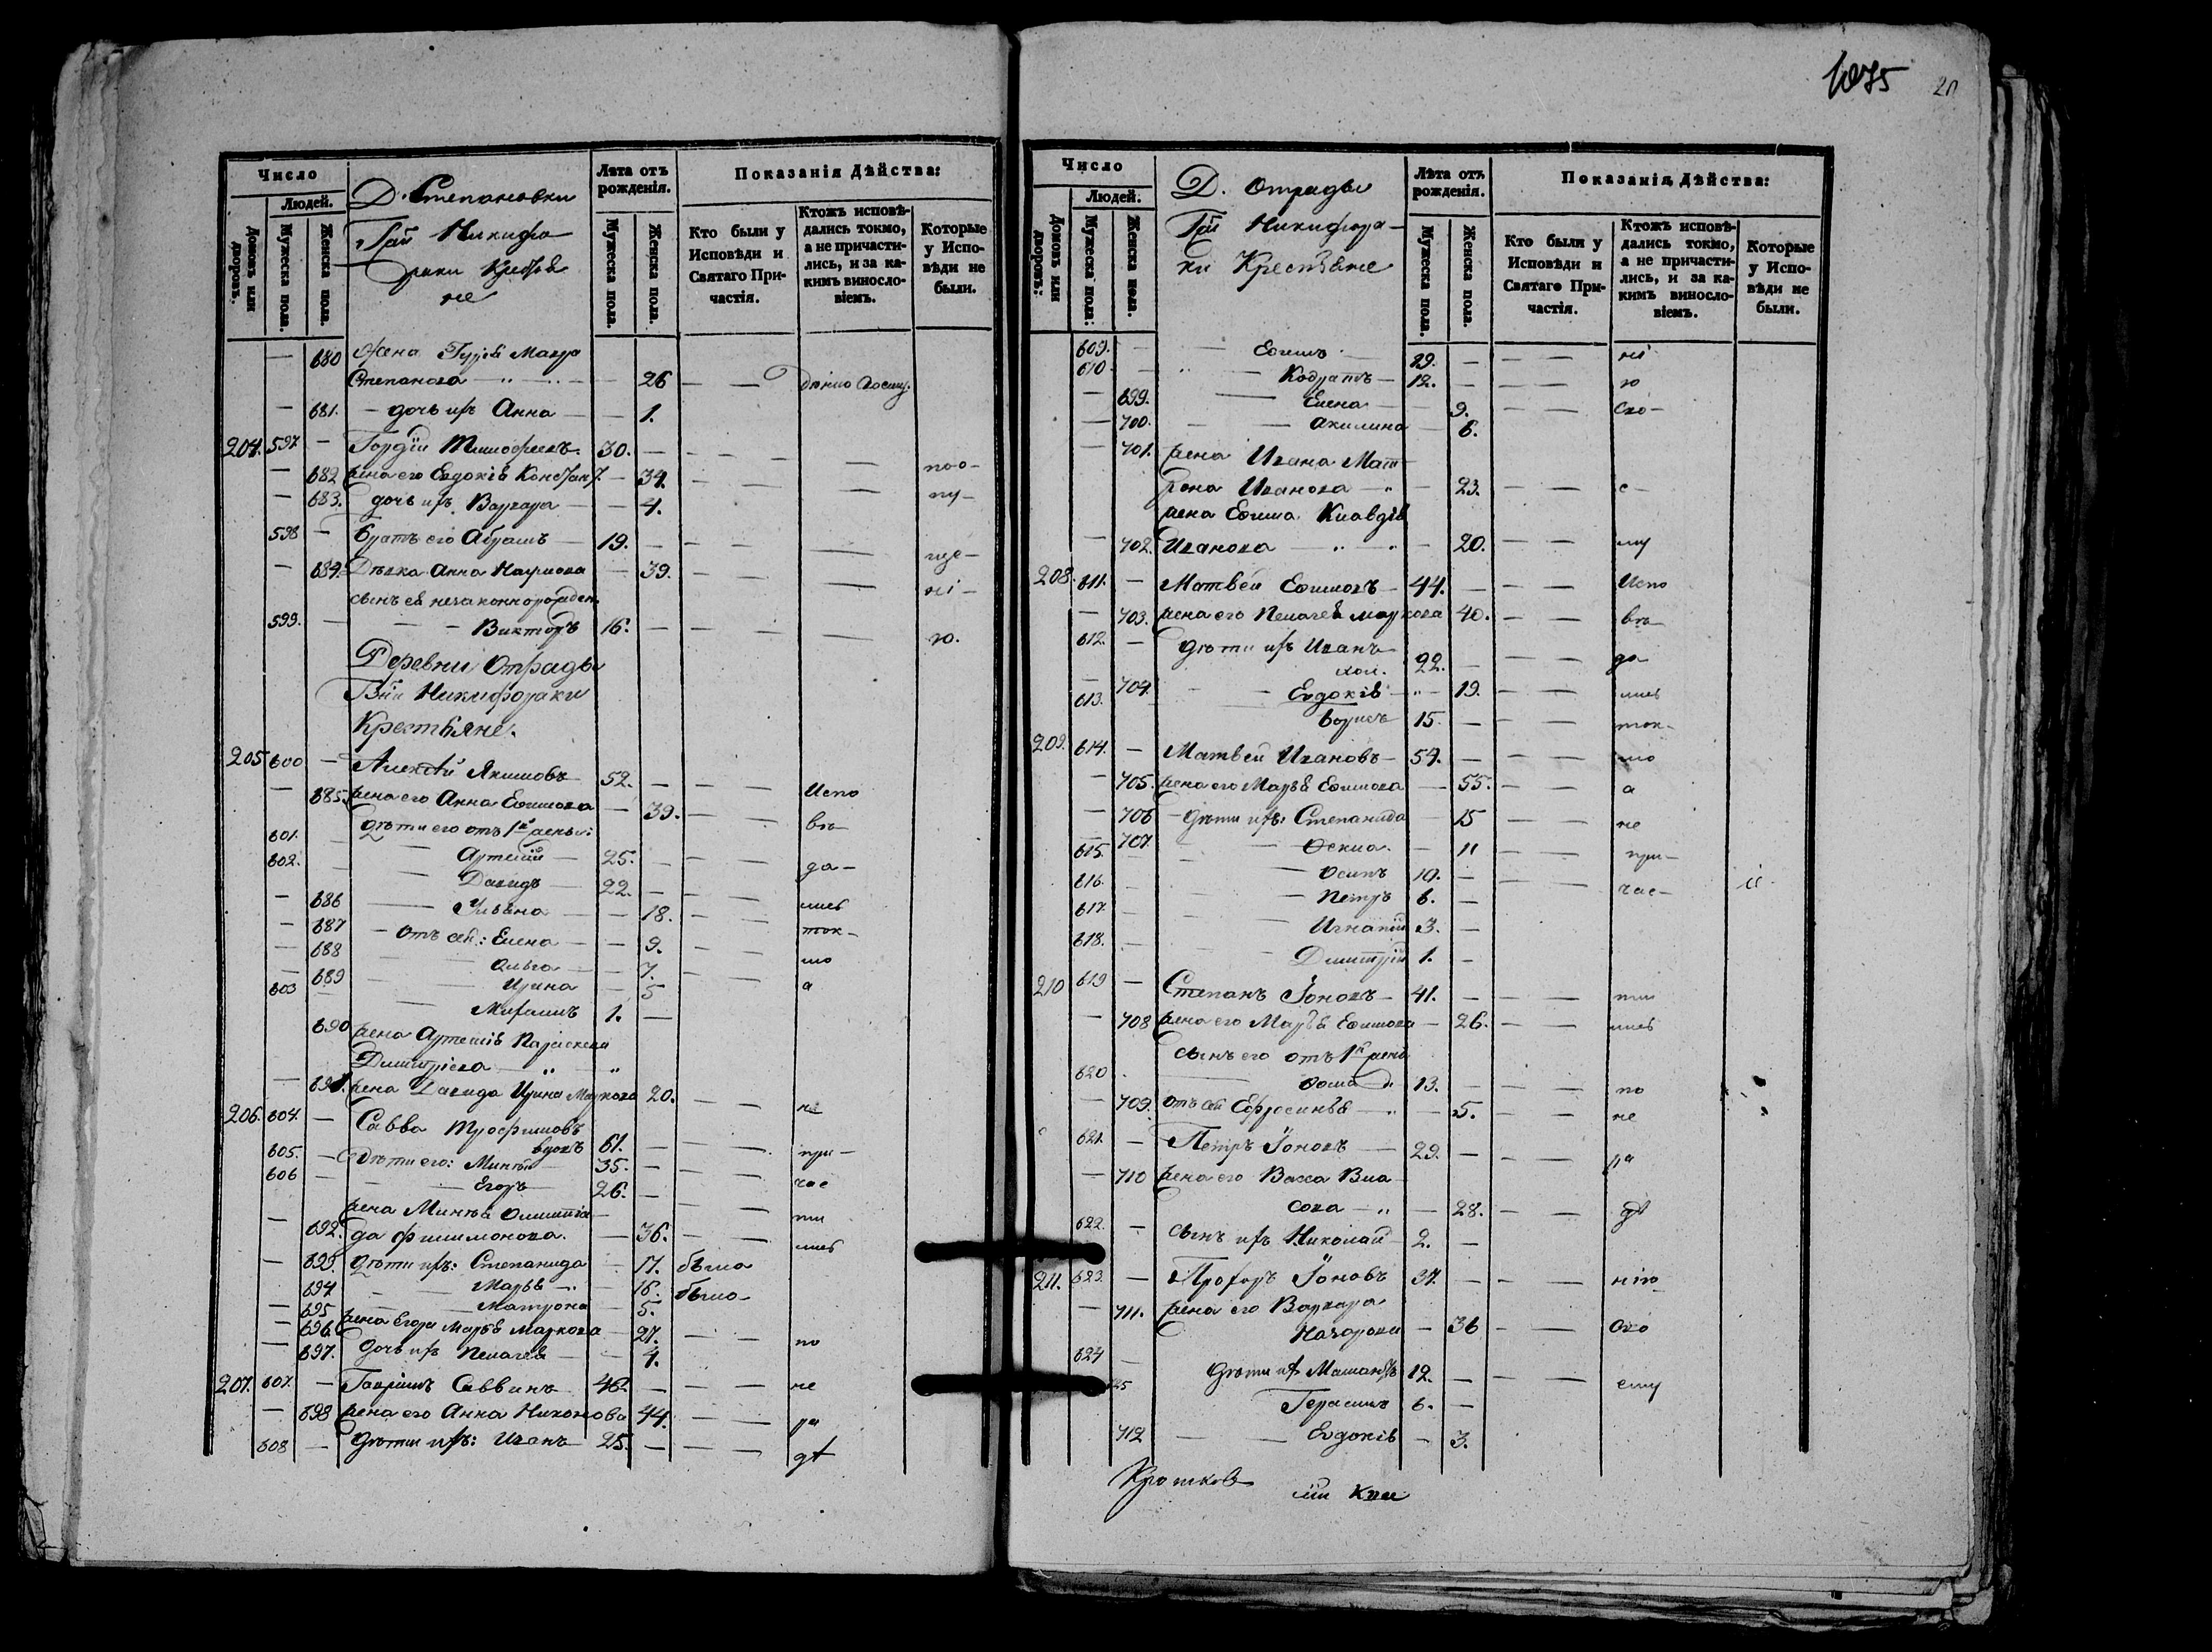 1075
20
Число
Д. Степановки
Лѣта отъ рожденія.
Показанія Дѣйства:
Людей.
Никифо
раки
не
Домовъ или дворовъ.
Мужеска пола.
Женска пола.
Мужеска пола.
Женска пола.
Кто были у Исповѣди и Святаго Причастія.
Ктожъ исповѣдались токмо, а не причастились, и за какимъ винословіемъ.
Которые у Исповѣди не были.
— 680 жена
Степанова — 26 — —
— 681. — дочь ихъ Анна — — 1.
204. 597 — Гордѣй 30. — — — —
— 682 жена его Евдокія Констан. — 34. — — — поо-
— 683. дочь ихъ Варвара — — 4. — — — лу-
598 — братъ его Абрамъ — 19. — — — —
— 684. Дѣвка Анна Наумова — 39. — — — ні-
сынъ ея незаконнорожден.
599. — — — Викторъ 16. — — — — ю.
Деревни Отрады
Никифораки
Крестьяне.
205 600 — Алексѣй Якимовъ 52. — — — Испо
— 685. жена его Анна Ефимова — 39. — — вѣ-
дѣти его отъ 1й жены:
601. — — Артемій — 25. — — — да-
602. — — Давидъ — 22. — — — лись
— 686 — Ульяна — — 18. — — ток-
— 687 — отъ сей: Елена — — 9. — — мо
— 688 — — Ольга — — 7. — — а
— 689 — — Ирина — 5
603 — — Михаилъ 1. —
690 жена Артемія Параскева
Димитріева
— 691. жена Давида Ирина Маркова 20. — — не
206. 604. — Савва Трофимовъ
вдовъ 61. — — — при-
605. — дѣти его: Миней 35. — — — час
606 — — — Егоръ 26. — — — ти
жена Минея Олимпіа-
— 692. да Филимонова. — 36. — — лись
— 693. дѣти ихъ: Степанида — 17. была
694 — — Марья — 16. была
— 695 — — Матрона — 5.
— 696. жена Егора Марья Маркова — 27. — — по
— 697. дочь ихъ Пелагея — — 4.
207. 607. — Гавріилъ Саввинъ 46. — — — не
— 698 жена его Анна Никонова 44. — — ра
608 — дѣти ихъ: Иванъ 25. — — — дѣ
Число
Д. Отрады
Лѣта отъ рожденія.
Показанія Дѣйства:
Людей.
Никифора-
ки Крестьяне
Домовъ или дворовъ:
Мужеска пола:
Женска пола.
Мужеска пола.
Женска пола.
Кто были у Исповѣди и Святаго Причастія.
Ктожъ исповѣдались токмо, а не причастились, и за какимъ винословіемъ.
Которые у Исповѣди не были.
609. — — Ефимъ — 19. — — — ні
610 — — Кодратъ — 12. — — — ю
— 699. — Елена — — 9. — — сво-
— 700. — — Акилина — 6.
— 701. жена Ивана Мат-
рона Иванова — 23. — — е-
жена Ефима Клавдія
— 702. Иванова — 20. — — му
208. 611. — Матвей Ефимовъ — 44. — — — Испо
— 703. жена его Пелагея Маркова 40. — — вѣ-
612. — дѣти ихъ Иванъ
хол. 22. — — — да
— 704. — — Евдокія — 19. — — лись
613. — Борисъ 15. — — — ток-
209. 614. — Матвей Ивановъ — 54. — — — мо
— 705. жена его Марья Ефимова — 55. — — а
— 706 — дѣти ихъ: Степанида — 15 — — не
— 707. — — Фекла. — 11 — — при-
615. — — Осипъ 10. — — — час-
616. — — Петръ 6. —
617. — — Игнатій 3. —
618. — — Димитрій 1. —
210 619 — Степанъ Іоновъ — 41. — — — ти
— 708 жена его Марья Ефимова — 26. — — лись
сынъ его отъ 1й жены
620 — Фома 13. — — — по
— 709. отъ сей Ефросинья — — 5. — — не
621. — Петръ Іоновъ — 29. — — — ра
— 710 жена его Васса Вла-
сова — 28. — — дѣ
622. — сынъ ихъ Николай 2. —
211. 623. — Прохоръ Іоновъ 37. — — — нію
— 711. жена его Варвара
Назарова — 36 — — сво
624 — дѣти их 12. — — — ему
Герасимъ 6. —
712 — — Евдокія — 3.